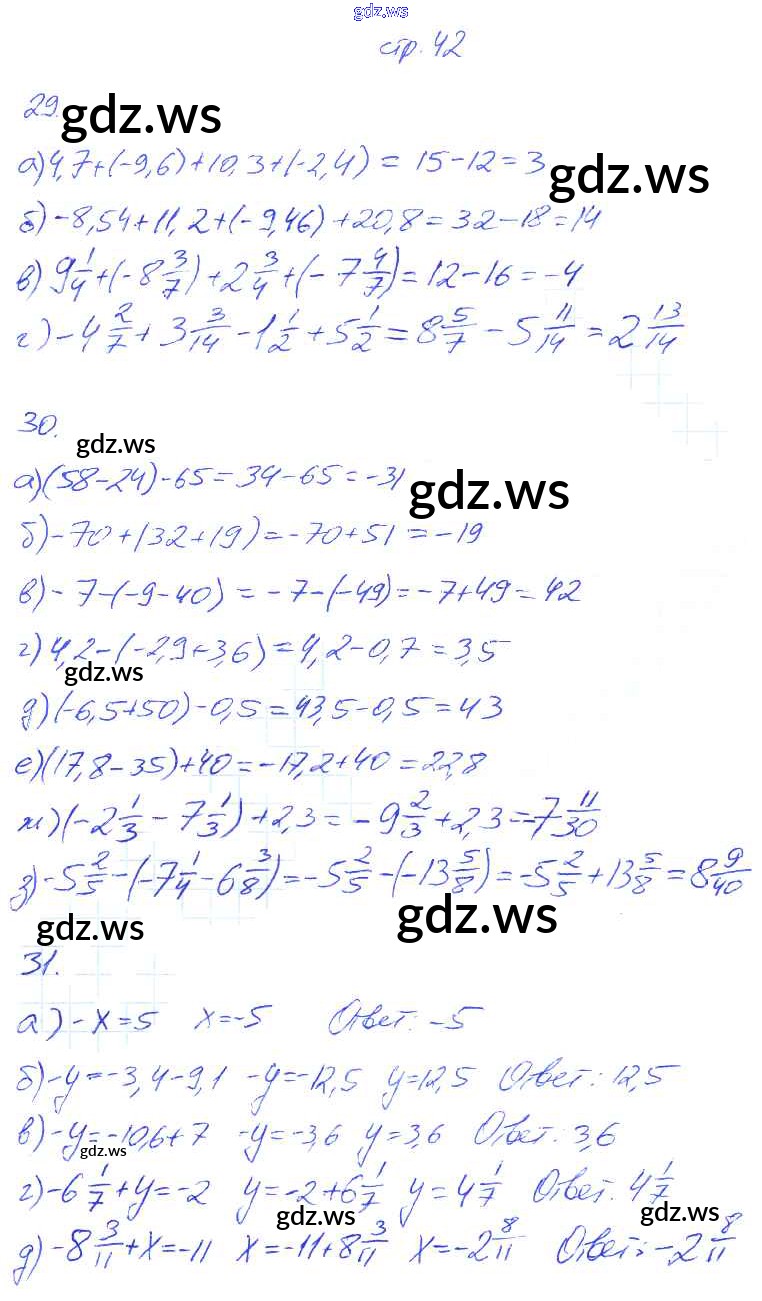 gdz.ws
стр. 42
29.
gdz.ws
а) 4,7+(-9,6)+10,3+(-2,4) = 15-12=3
gdz.ws
б) -8,54+11,2+(-9,46)+20,8=32-18=14
в) 9 1/4+(-8 3/7)+2 3/4+(-7 4/7)=12-16=-4
г) -4 2/7+3 3/14-1 1/2+5 1/2=8 5/7-5 11/14=2 13/14
30.
gdz.ws
а) (58-24)-65=34-65=-31
gdz.ws
б) -70+(32+19)=-70+51=-19
в) -7-(-9-40)=-7-(-49)=-7+49=42
г) 4,2-(-2,9+3,6)=4,2-0,7=3,5
gdz.ws
д) (-6,5+50)-0,5=43,5-0,5=43
е) (17,8-35)+40=-17,2+40=22,8
ж) (-2 1/3-7 1/3)+2,3=-9 2/3+2,3=-7 11/30
з) -5 2/5-(-7 1/4-6 3/8)=-5 2/5-(-13 5/8)=-5 2/5+13 5/8=8 9/40
gdz.ws
gdz.ws
31.
а) -x=5 x=-5 Ответ: -5
б) -y=-3,4-9,1 -y=-12,5 y=12,5 Ответ: 12,5
в) -y=-10,6+7 -y=-3,6 y=3,6 Ответ: 3,6
gdz.ws
г) -6 1/7+y=-2 y=-2+6 1/7 y=4 1/7 Ответ: 4 1/7
gdz.ws
gdz.ws
д) -8 3/11+x=-11 x=-11+8 3/11 x=-2 8/11 Ответ: -2 8/11